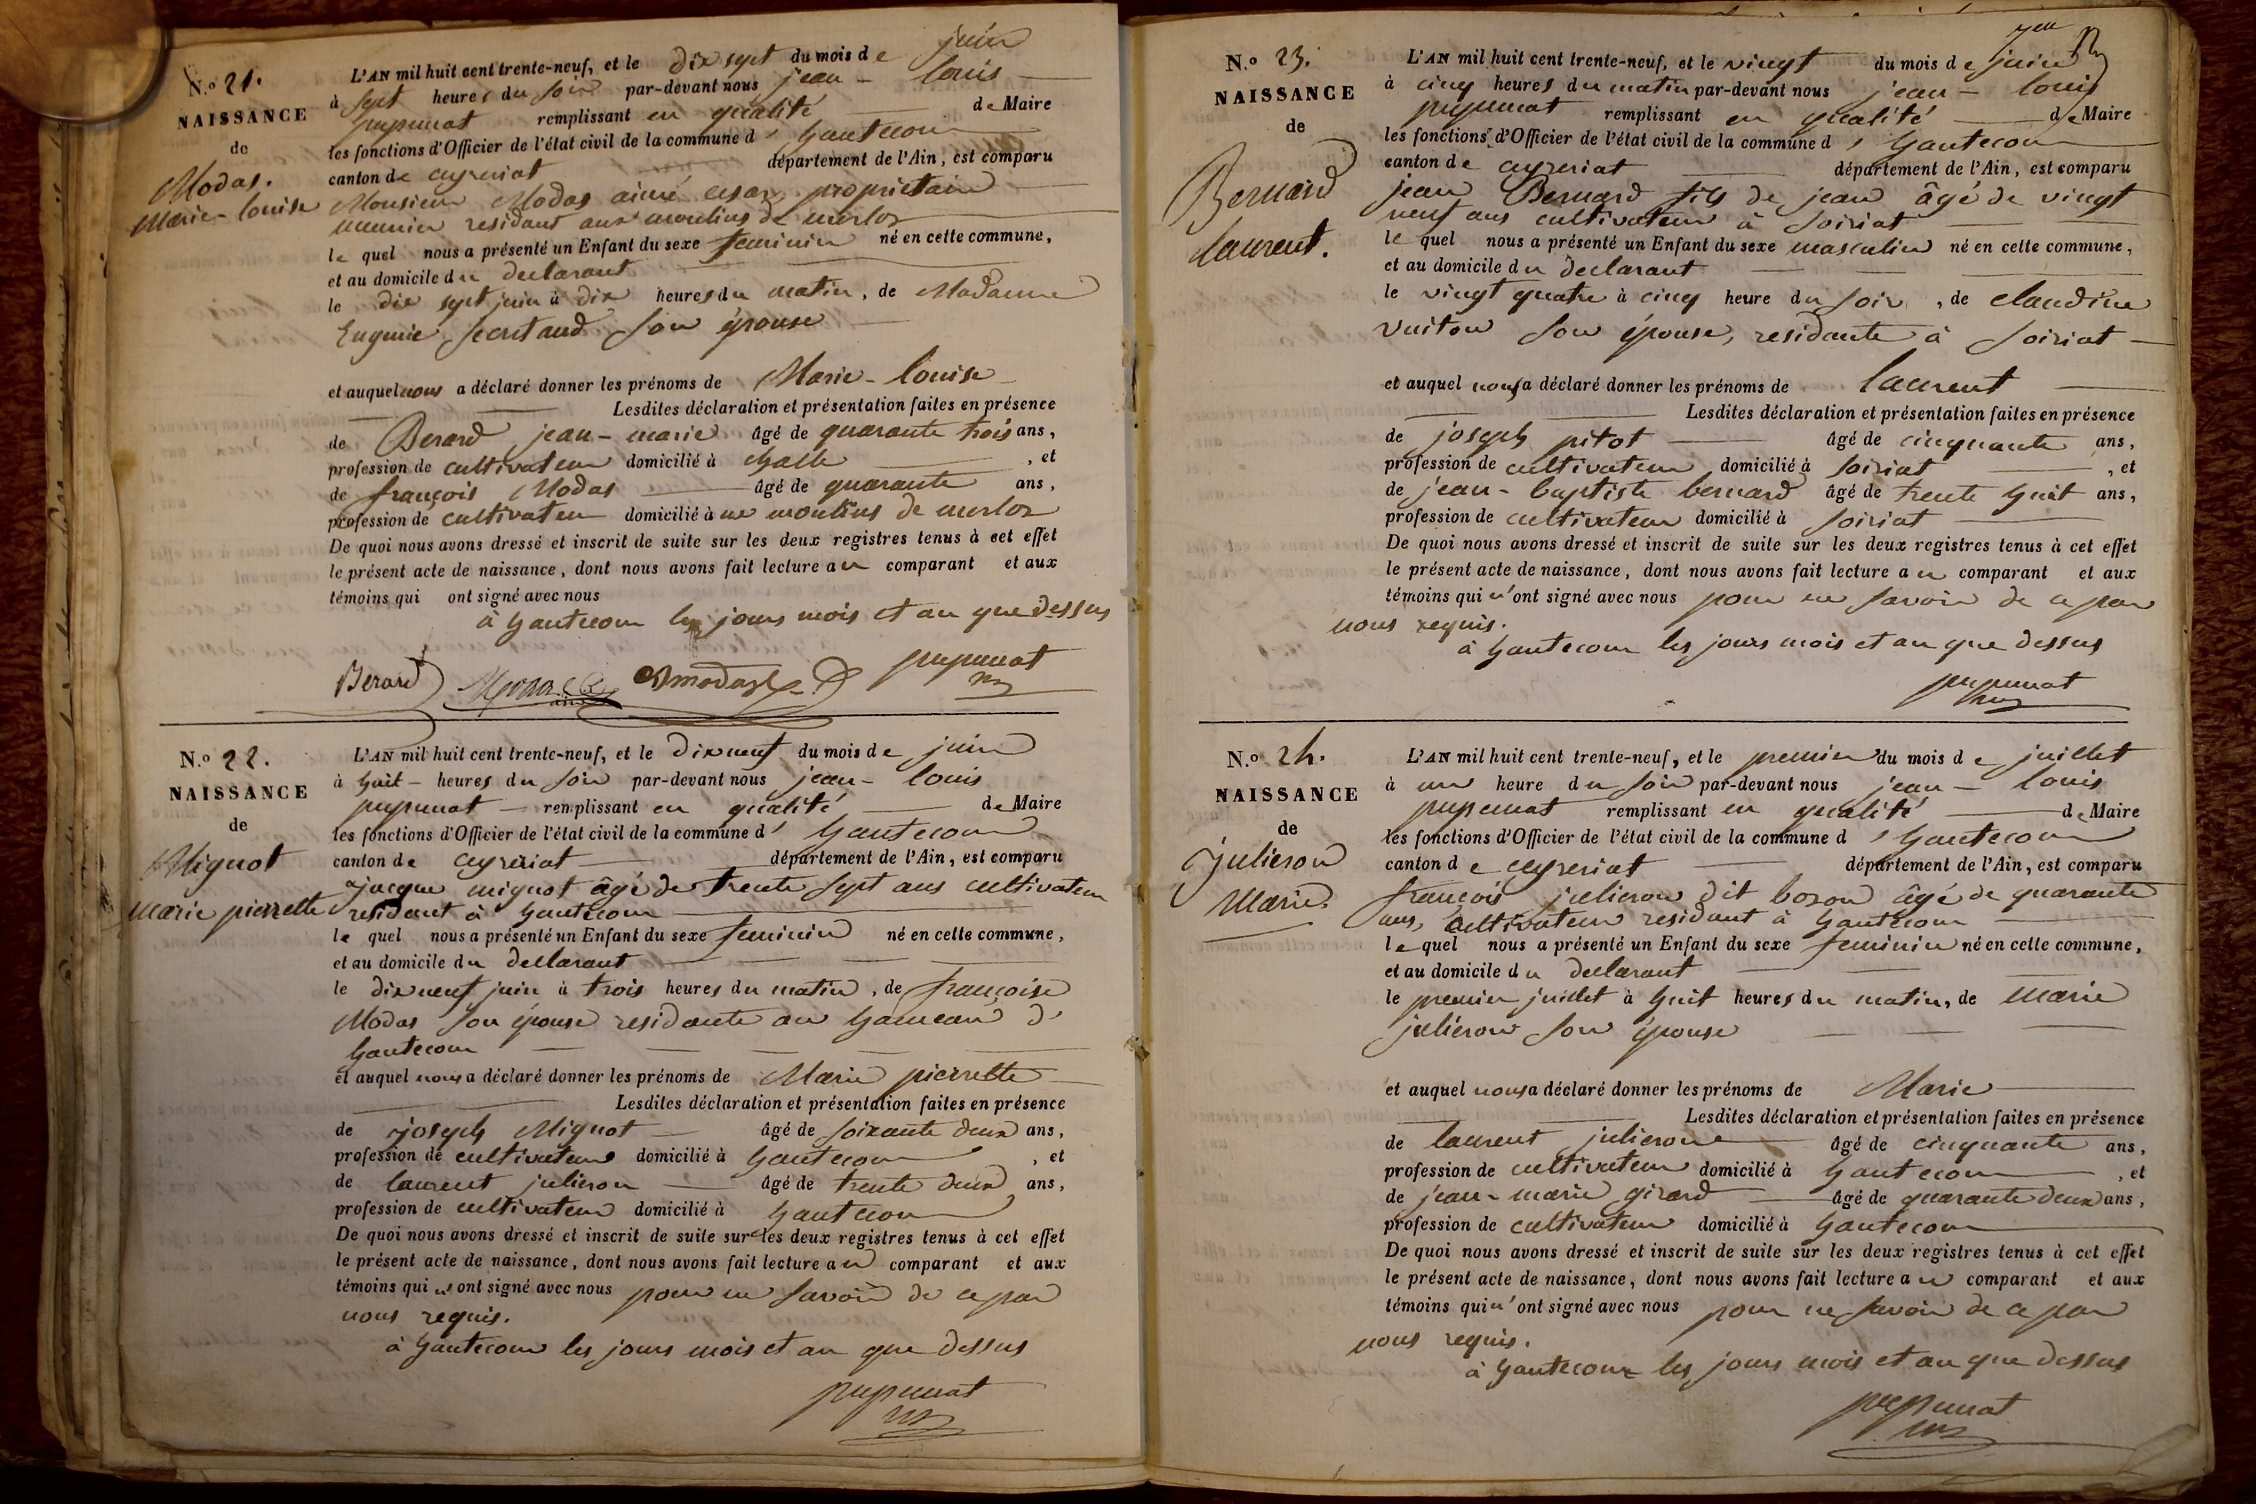 N.o 21.
NAISSANCE
de
Modas.
Marie-louise
L'AN mil huit cent trente-neuf, et le dix sept du mois de juin
à sept heures du soir par-devant nous jean - louis
pupunat remplissant en qualité de Maire
les fonctions d'Officier de l'état civil de la commune d' hautecour
canton de ceyzeriat département de l'Ain, est comparu
Monsieur Modas aimé cesar proprietaire
meunier residant aux moulins de merloz
le quel nous a présenté un Enfant du sexe feminin né en cette commune,
et au domicile du declarant
le dix sept juin à dix heures du matin, de Madame
Eugenie son épouse
et auquel nous a déclaré donner les prénoms de Marie - louise
Lesdites déclaration et présentation faites en présence
de Berard jean - marie âgé de quarante trois ans,
profession de cultivateur domicilié à challe, et
de françois Modas âgé de quarante ans,
profession de cultivateur domicilié à ux moulins de merloz
De quoi nous avons dressé et inscrit de suite sur les deux registres tenus à cet effet
le présent acte de naissance, dont nous avons fait lecture au comparant et aux
témoins qui ont signé avec nous
à hautecour les jours mois et an que dessus
Berard Modas pupunat
N.o 22.
NAISSANCE
de
Mignot
Marie pierrette
L'AN mil huit cent trente-neuf, et le dix neuf du mois de juin
à huit - heures du soir par-devant nous jean - louis
pupunat remplissant en qualité de Maire
les fonctions d'Officier de l'état civil de la commune d' hautecour
canton de ceyzeriat département de l'Ain, est comparu
jacque mignot âgé de trente sept ans cultivateur
residant à hautecour
le quel nous a présenté un Enfant du sexe feminin né en cette commune,
et au domicile du declarant
le dix neuf juin à trois heures du matin, de françoise
Modas son épouse residante au hameau d'
hautecour
et auquel nous a déclaré donner les prénoms de Marie pierrette
Lesdites déclaration et présentation faites en présence
de joseph Mignot âgé de soixante deux ans,
profession de cultivateur domicilié à hautecour, et
de laurent julieron âgé de trente deux ans,
profession de cultivateur domicilié à hautecour
De quoi nous avons dressé et inscrit de suite sur les deux registres tenus à cet effet
le présent acte de naissance, dont nous avons fait lecture au comparant et aux
témoins qui n'ont signé avec nous pour ne savoir de ce par
nous requis.
à hautecour les jours mois et an que dessus
pupunat
N.o 23.
NAISSANCE
de
Bernard
laurent.
L'AN mil huit cent trente-neuf, et le vingt du mois de juin
à cinq heures du matin par-devant nous jean - louis
pupunat remplissant en qualité de Maire
les fonctions d'Officier de l'état civil de la commune d' hautecour
canton de ceyzeriat département de l'Ain, est comparu
jean Bernard fils de jean âgé de vingt
neuf ans cultivateur à soiriat
le quel nous a présenté un Enfant du sexe masculin né en cette commune,
et au domicile du declarant
le vingt quatre à cinq heure du soir, de claudine
vuiton son épouse, residante à soiriat
et auquel nous a déclaré donner les prénoms de laurent
Lesdites déclaration et présentation faites en présence
de joseph pitot âgé de cinquante ans,
profession de cultivateur domicilié à soiriat, et
de jean - baptiste bernard âgé de trente huit ans,
profession de cultivateur domicilié à soiriat
De quoi nous avons dressé et inscrit de suite sur les deux registres tenus à cet effet
le présent acte de naissance, dont nous avons fait lecture au comparant et aux
témoins qui n'ont signé avec nous pour ne savoir de ce par
nous requis.
à hautecour les jours mois et an que dessus
pupunat
N.o 24.
NAISSANCE
de
julieron
Marie.
L'AN mil huit cent trente-neuf, et le premier du mois de juillet
à un heure du soir par-devant nous jean - louis
pupunat remplissant en qualité de Maire
les fonctions d'Officier de l'état civil de la commune d' hautecour
canton de ceyzeriat département de l'Ain, est comparu
françois julieron dit bozon âgé de quarante
ans, cultivateur residant à hautecour
le quel nous a présenté un Enfant du sexe feminin né en cette commune,
et au domicile du declarant
le premier juillet à huit heures du matin, de marie
julieron son épouse
et auquel nous a déclaré donner les prénoms de Marie
Lesdites déclaration et présentation faites en présence
de laurent julieron âgé de cinquante ans,
profession de cultivateur domicilié à hautecour, et
de jean - marie girard âgé de quarante deux ans,
profession de cultivateur domicilié à hautecour
De quoi nous avons dressé et inscrit de suite sur les deux registres tenus à cet effet
le présent acte de naissance, dont nous avons fait lecture au comparant et aux
témoins qui n'ont signé avec nous pour ne savoir de ce par
nous requis.
à hautecour les jours mois et an que dessus
pupunat